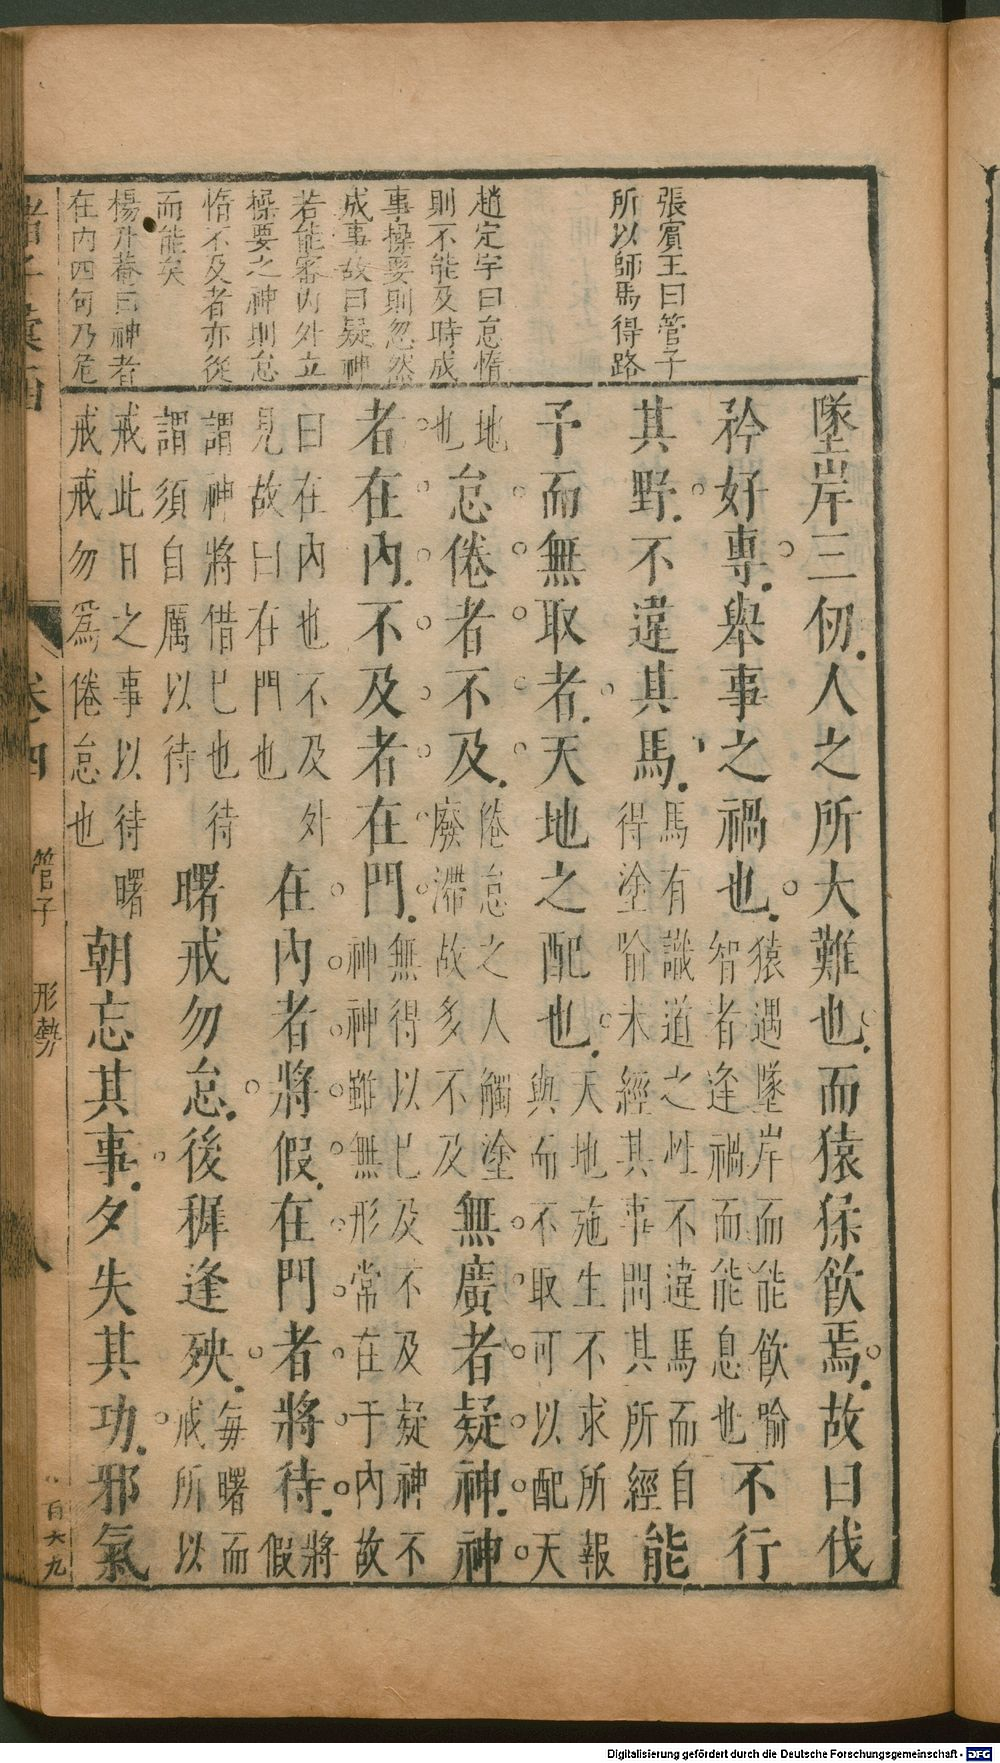 張賓王曰管子
所以師馬得路
趙定宇曰怠惰
則不能及時成
事操要則忽然
成事故曰疑神
若能審內外立
操要之神則怠
惰不及者亦從
而能矣
楊升菴曰神者
在內四句乃危
墜岸三仞人之所大難也而猿猱飲焉故曰伐
矜好專舉事之禍也猿遇墜岸而能飲喻智者逢禍而能息也不行
其野不違其馬馬有識道之性不違馬而自得塗喻未經其事問其所經能
予而無取者天地之配也天地施生不求所報與而不取可以配天
地也怠倦者不及倦怠之人觸塗廢滯故多不及無廣者疑神神
者在內不及者在門無得以已及不及疑神不神神雖無形常在于內故
曰在內也不及外見故曰在門也在內者將假在門者將待將假
謂神將借已也待謂須自厲以待曙戒勿怠後穉逢殃每曙而戒所以
戒此日之事以待曙戒戒勿爲倦怠也朝忘其事夕失其功邪氣
卷四
管子
形勢
百六九
Digitalisierung gefördert durch die Deutsche Forschungsgemeinschaft - DFG